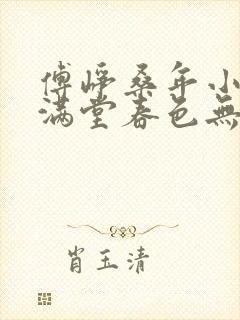 傅峥桑年小
满堂春色無
肖玉清